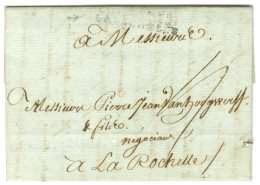 à Messieurs
Messieurs Pierre Jean Van hoogwerff
& fils
négociant
à La Rochelle